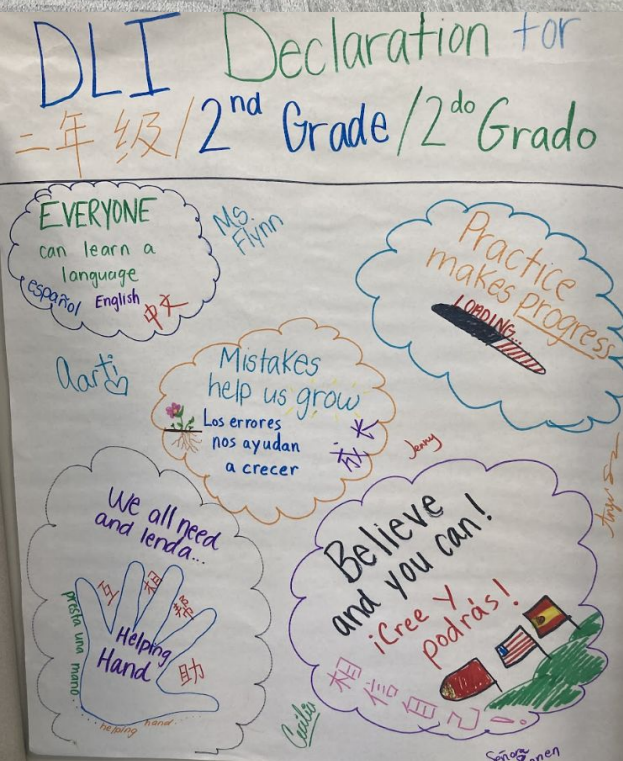 DLI Declaration for
二年级/2nd Grade/2do Grado
EVERYONE
can learn a
language
español English 中文
Ms.
Flynn
Practice
makes progress
LOADING...
Aarti
Mistakes
help us grow
Los errores
nos ayudan
a crecer
成长
Jenny
We all need
and lend a...
互相
帮助
Helping
Hand
presta una mano.
helping hand
Believe
and you can!
¡Cree y
podrás!
相信自己!
Cecilia
Señora